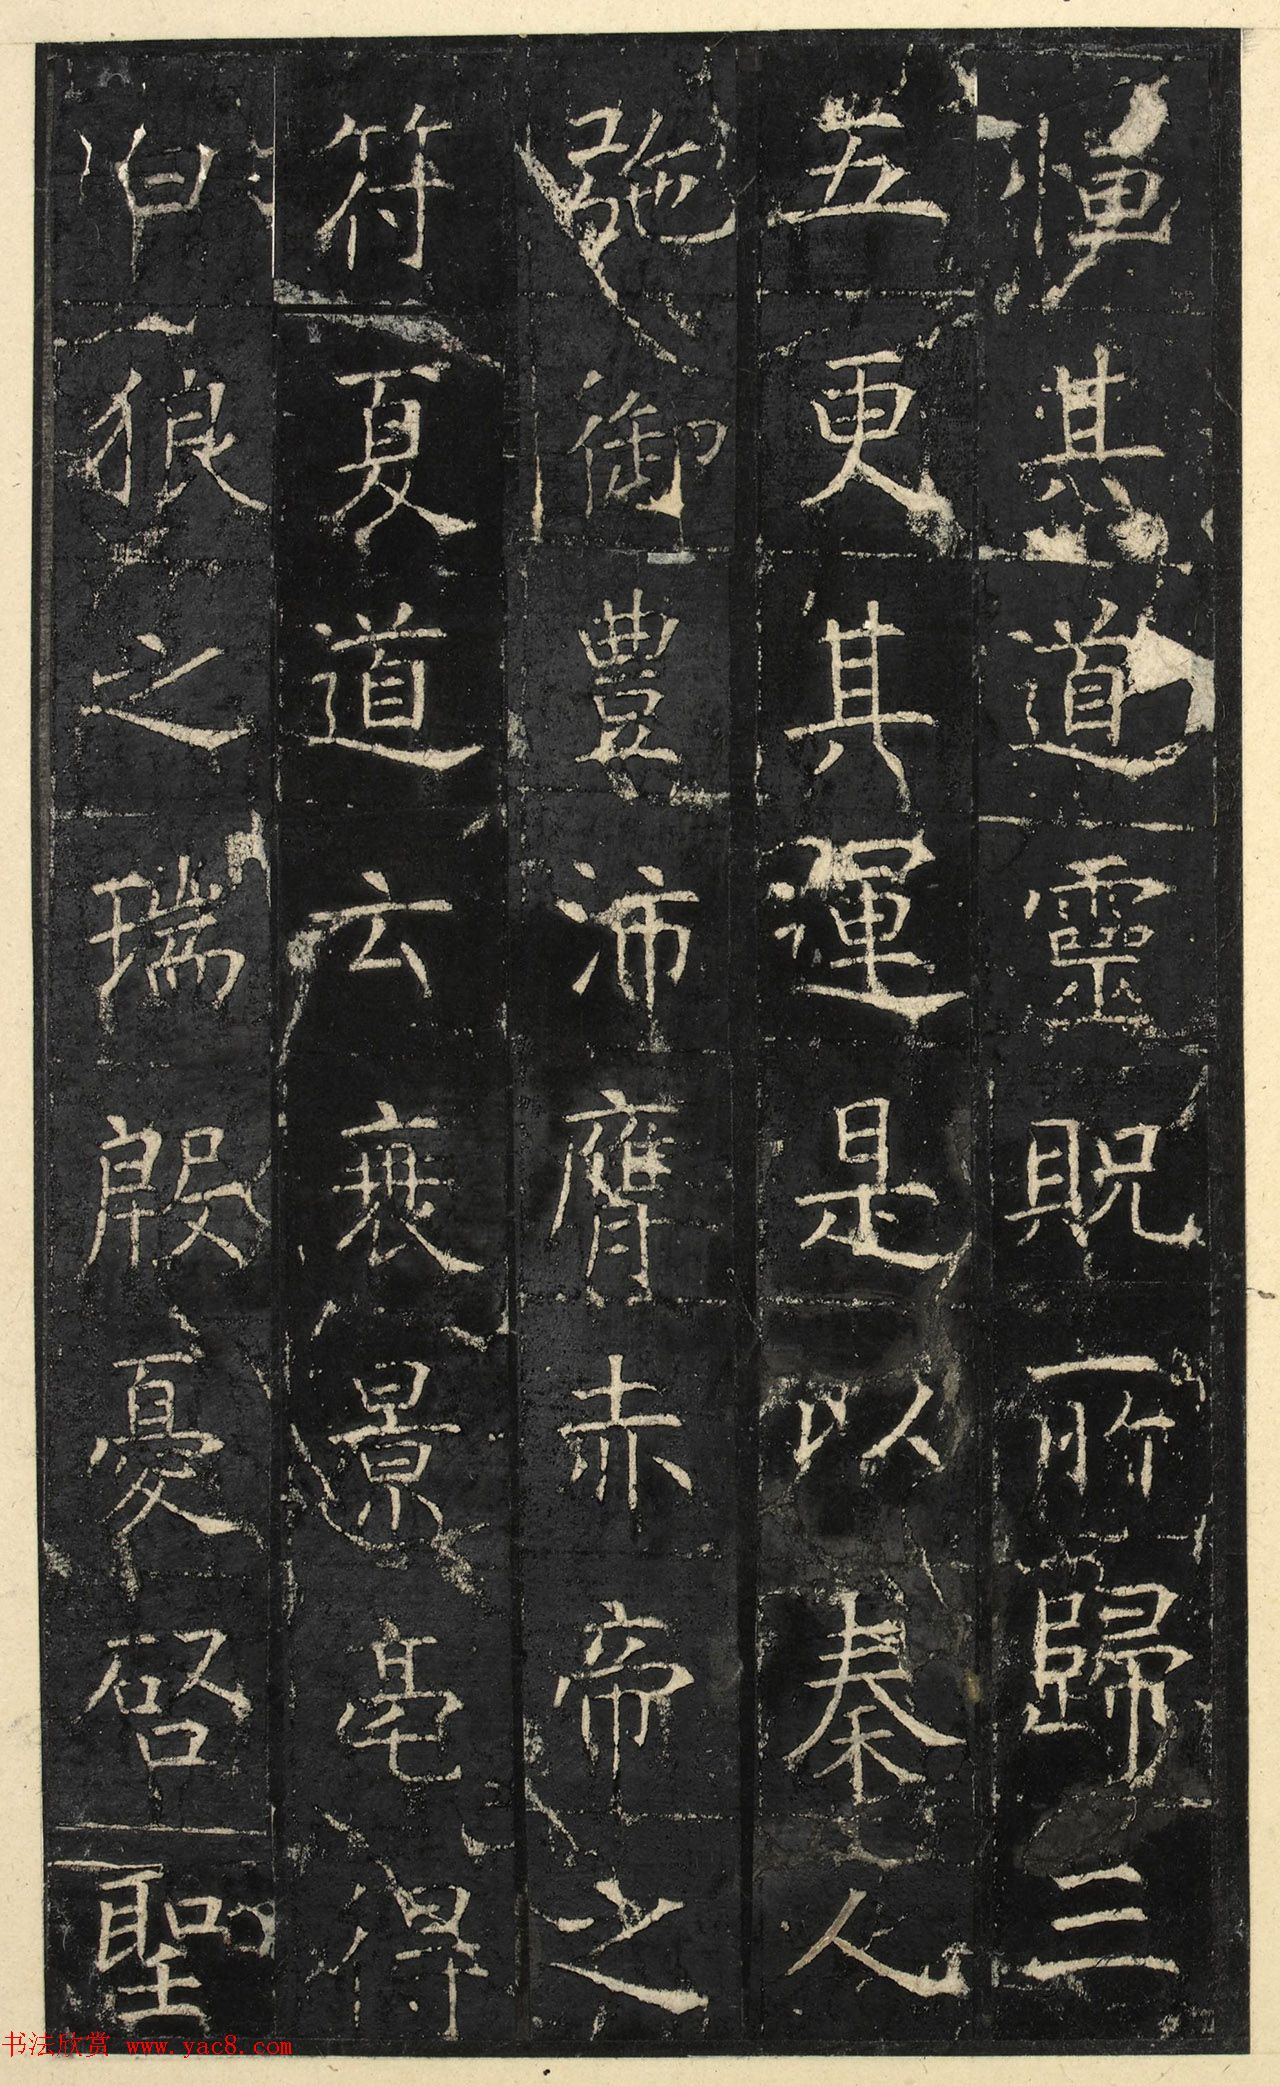 悝其道靈貺所歸三
五更其運是以秦人
弛御豊沛膺赤帝之
符夏道云衰景亳得
白狼之瑞殷憂啓聖
书法欣赏 www.yac8.com